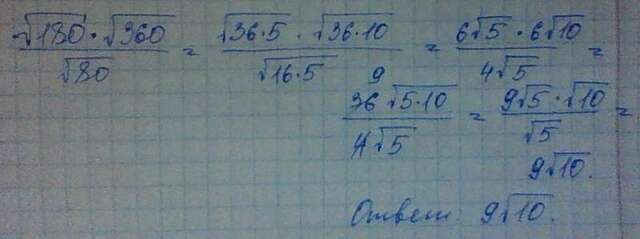 √180 · √360 / √80 = √36·5 · √36·10 / √16·5 = 6√5 · 6√10 / 4√5 =
9
36 √5·10 / 4√5 = 9√5 · √10 / √5 =
9√10.
Ответ: 9√10.